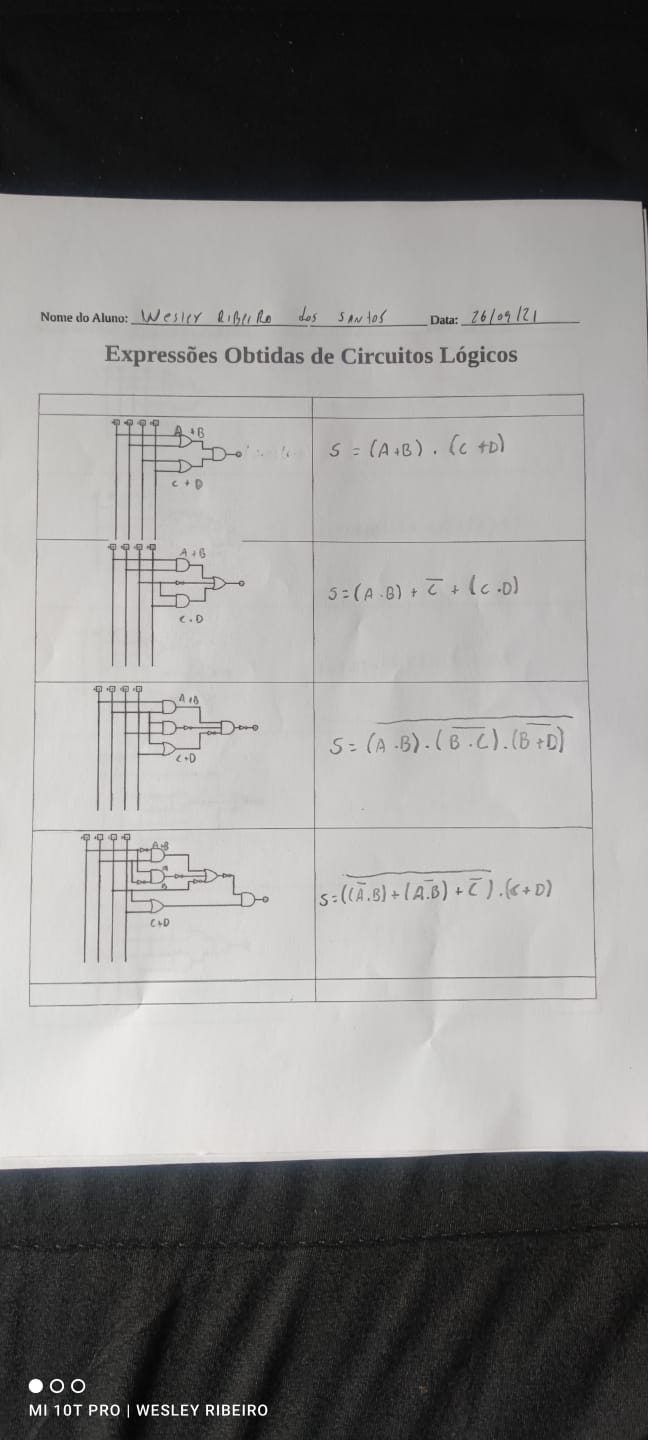 Nome do Aluno: Wesley Ribeiro dos Santos Data: 26/09/21
Expressões Obtidas de Circuitos Lógicos
A+B
C+D
S = (A+B) . (C+D)
A+B
C.D
S=(A.B) + C̅ + (C.D)
A+B
C+D
S= (A.B).(B.C).(B+D)
A.B
A
B
C+D
S=((A̅.B)+(A.B)+C̅).(C+D)
MI 10T PRO | WESLEY RIBEIRO